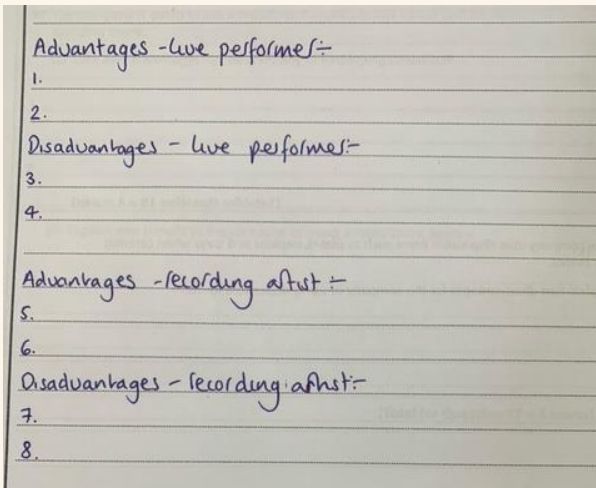 Advantages - live performer:-
1.
2.
Disadvantages - live performer:-
3.
4.
Advantages - recording artist :-
5.
6.
Disadvantages - recording artist:-
7.
8.